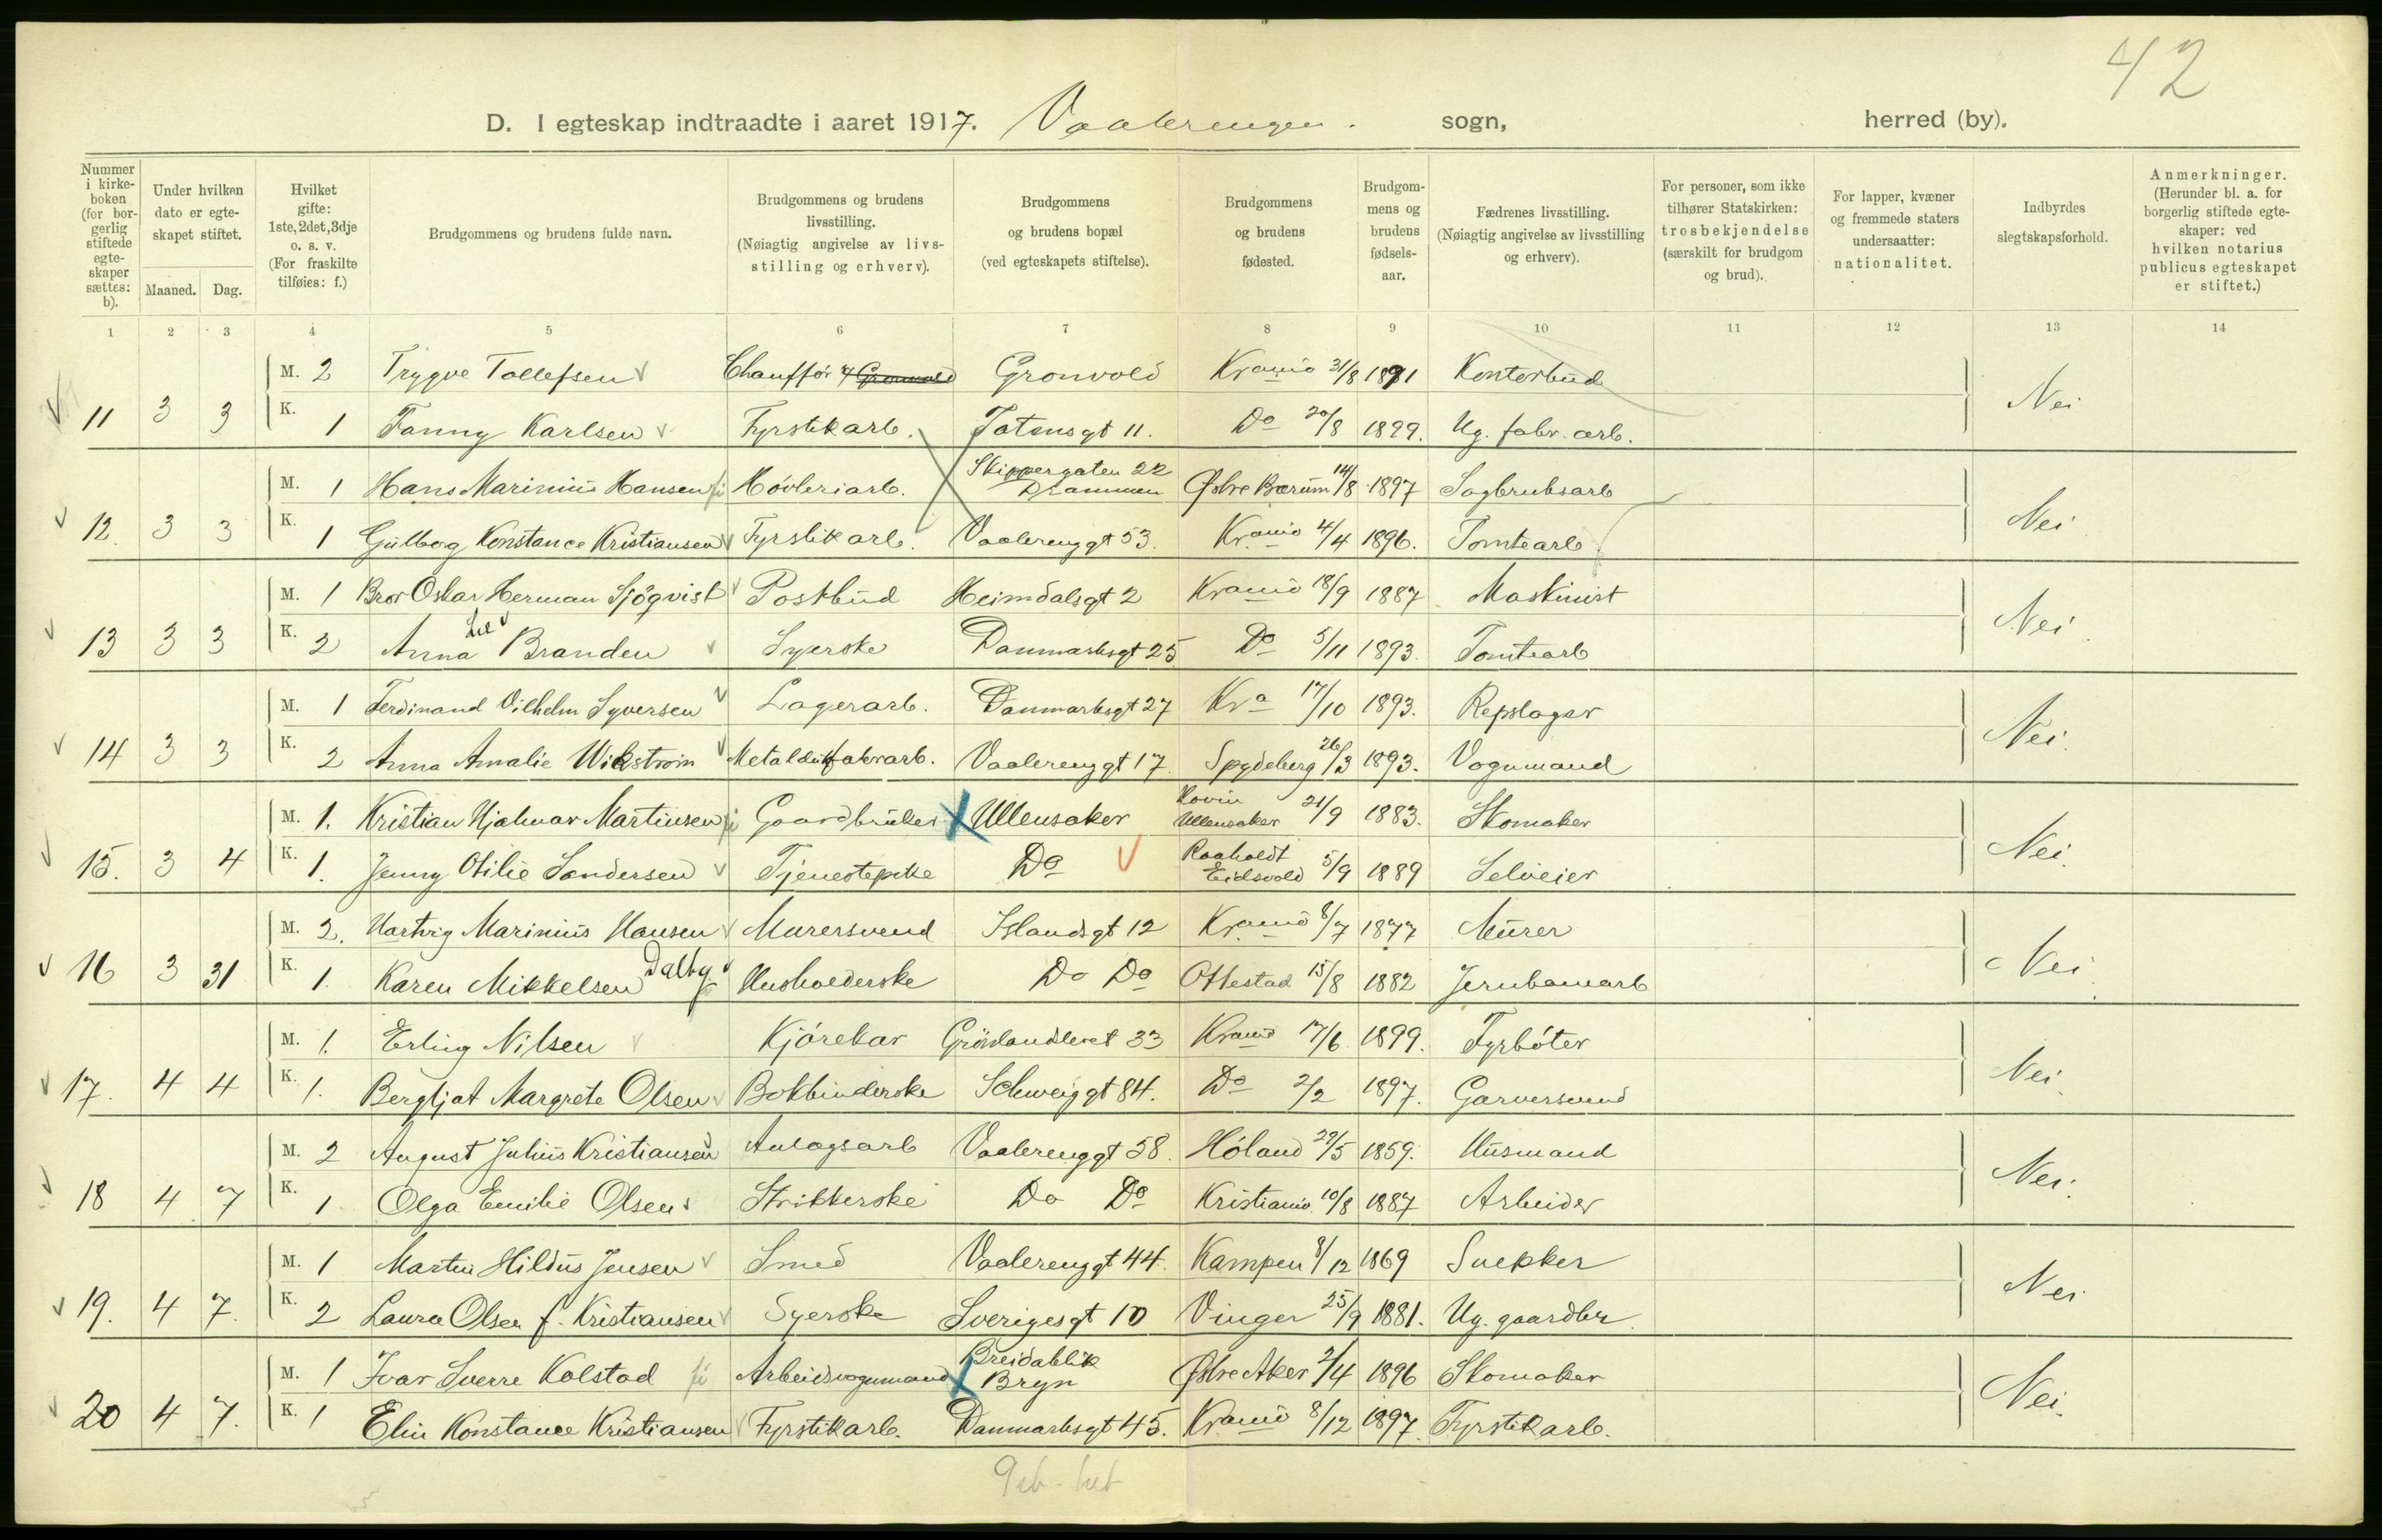 42
D. I egteskap indtraadte i aaret 1917. Vaalerengen. sogn, herred (by).
Nummer i kirkeboken (for borgerlig stiftede egteskaper sættes: b).
Under hvilken dato er egteskapet stiftet.
Maaned. Dag.
Hvilket gifte: 1ste, 2det, 3dje o. s. v. (For fraskilte tilføies: f.)
Brudgommens og brudens fulde navn.
Brudgommens og brudens livsstilling. (Nøiagtig angivelse av livsstilling og erhverv).
Brudgommens og brudens bopæl (ved egteskapets stiftelse).
Brudgommens og brudens fødested.
Brudgommens og brudens fødselsaar.
Fædrenes livsstilling. (Nøiagtig angivelse av livsstilling og erhverv).
For personer, som ikke tilhører Statskirken: trosbekjendelse (særskilt for brudgom og brud).
For lapper, kvæner og fremmede staters undersaatter: nationalitet.
Indbyrdes slegtskapsforhold.
Anmerkninger. (Herunder bl. a. for borgerlig stiftede egteskaper: ved hvilken notarius publicus egteskapet er stiftet.)
1 2 3 4 5 6 7 8 9 10 11 12 13 14
M. 2 Trygve Tollefsen Chauffør Gronvold Gronvold Kr.ania 31/8 1891 Kontorbud
11 3 3 K. 1 Fanny Karlsen Fyrstikarb. Totensgt 11. Do 20/8 1899. Ug. fabr. arb. Nei
M. 1 Hans Marinius Hansen Høvleriarb. Skippergaten 22 Drammen Østre Bærum 14/8 1897 Sagbruksarb
12. 3 3 K. 1 Gulbog Konstance Kristiansen Fyrstikarb. Vaalerenggt 53. Kr.ania 4/4 1896. Tomtearb. Nei
M. 1 Bror Oskar Herman Sjöqvist Postbud Heimdalsgt 2 Kr.ania 18/9 1887 Maskinist
13 3 3 K. 2 Anna Branden Syerske Danmarksgt 25 Do 5/11 1893. Tomtearb Nei
M. 1 Ferdinand Vilhelm Syversen Lagerarb. Danmarksgt 27 Kra 17/10 1893. Repslager
14 3 3 K. 2 Anna Amalie Wickstrøm Vaalerenggt 17. Spydeberg 26/3 1893. Vognmand Nei.
M. 1. Kristian Hjalmar Martinsen Gaardbruker Ullensaker Hovin Ullensaker 21/9 1883. Skomaker
15. 3 4 K. 1. Jenny Otilie Sandersen Tjenestepike Do Raaholdt Eidsvold 5/9 1889 Selveier Nei.
M. 2. Hartvig Marinius Hansen Murersvend Islandsgt 12 Kr.ania 8/7 1877 Murer
16 3 31 K. 1. Karen Mikkelsen Dalby Husholderske Do Do Ottestad 15/8 1882 Jernbanearb Nei.
M. 1. Erling Nilsen Kjørekar Grønlandleret 33 Kr.ania 17/6 1899. Fyrbøter
17. 4 4 K. 1. Bergljot Margrete Olsen Bokbinderske Schweiggt 84. Do 2/2 1897. Garversvend Nei.
M. 2 August Julius Kristiansen Anlagsarb Vaalerenggt 58. Høland 29/5 1859. Husmand
18 4 7 K. 1 Olga Emilie Olsen Strikkerske Do Do Kristiania 10/8 1887 Arbeider Nei.
M. 1 Martin Hildus Jensen Smed Vaalerenggt 44. Kampen 8/12 1869 Snekker
19. 4 7. K. 2 Laura Olsen f. Kristiansen Syerske Sverigesgt 10 Vinger 25/9 1881. Ug. gaardbr. Nei
M. 1 Ivar Sverre Kolstad Arbeidsvognmand Breidablik Bryn Østre Aker 2/4 1896 Skomaker
20 4 7. K. 1 Elin Konstance Kristiansen Fyrstikarb. Danmarksgt 45. Kr.ania 8/12 1897. Fyrstikarb. Nei.